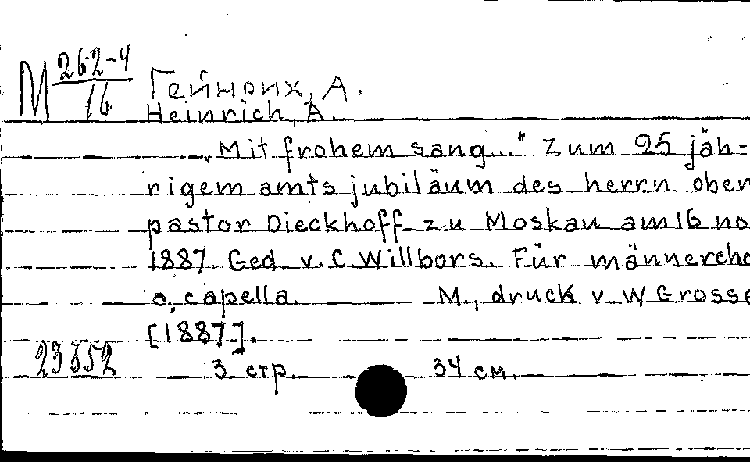 М 262-4
16
Гейнрих, А.
Heinrich, A.
„Mit frohem sang..." Zum 25 jäh-
rigem amts jubiläum des herrn ober
pastor Dieckhoff zu Moskau am 16 no
1887. Ged. v. C. Willbors. Für männercho
a capella. M., druck v. W Grosse
[1887].
3 стр. 34 см.